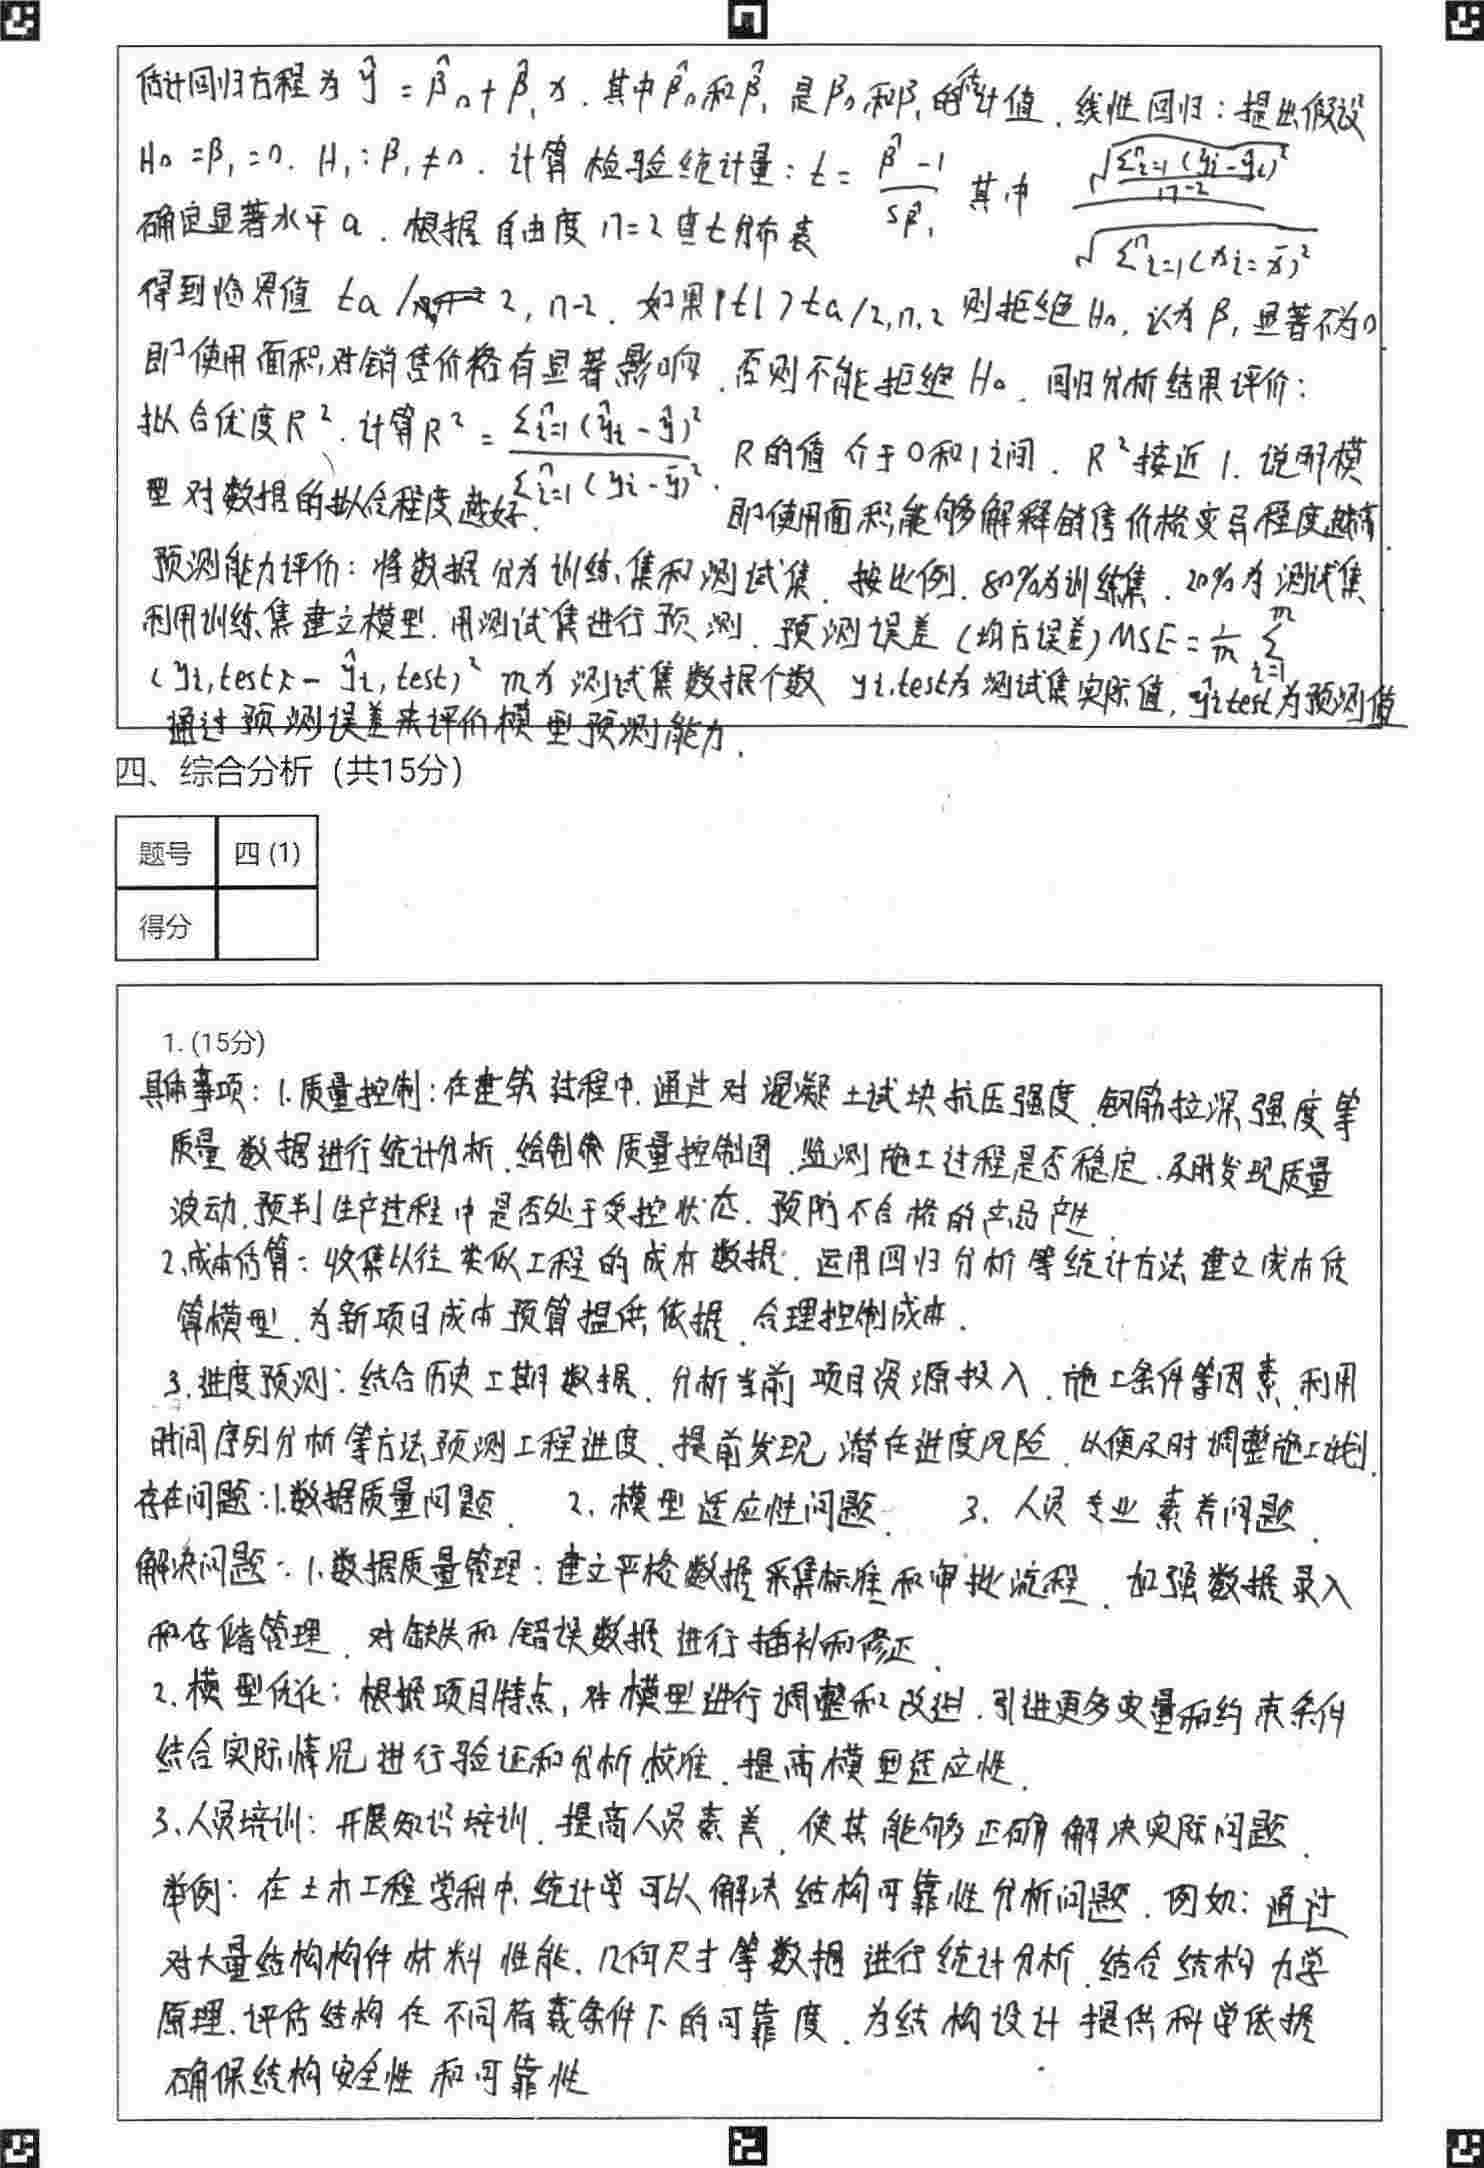 估计回归方程为 ŷ = β̂₀ + β̂₁x. 其中β̂₀和β̂₁是β₀和β₁的估计值. 线性回归:提出假设
H₀=β₁=0. H₁:β₁≠0. 计算检验统计量:t = (β̂-1)/(sβ̂₁) 其中 √(Σⁿi=1(yi-ŷi)²/(n-2)) / √(Σⁿi=1(xi=x̄)²)
确定显著水平a. 根据自由度n=2查t分布表
得到临界值 ta/2,n-2. 如果|t|>ta/2,n,2 则拒绝H₀, 认为β₁显著不为0
即使用面积对销售价格有显著影响. 否则不能拒绝H₀. 回归分析结果评价:
拟合优度R². 计算R² = Σⁿi=1(ŷi-ŷ)² / Σⁿi=1(yi-ȳ)². R的值介于0和1之间. R²接近1. 说明模
型对数据的拟合程度越好. 即使用面积能够解释销售价格变异程度越高.
预测能力评价:将数据分为训练集和测试集. 按比例. 80%为训练集. 20%为测试集
利用训练集建立模型. 用测试集进行预测. 预测误差(均方误差)MSE=1/m Σᵐi=1
(yi,test-ŷi,test)² m为测试集数据个数 yi.test为测试集实际值, ŷi test为预测值
通过预测误差来评价模型预测能力.
四、综合分析 (共15分)
题号 四 (1)
得分
1. (15分)
具体事项:1.质量控制:在建筑过程中.通过对混凝土试块抗压强度.钢筋拉深强度等
质量数据进行统计分析.绘制质量控制图.监测施工过程是否稳定.及时发现质量
波动.预判生产过程中是否处于受控状态.预防不合格的产品产生.
2.成本估算:收集以往类似工程的成本数据.运用回归分析等统计方法建立成本估
算模型.为新项目成本预算提供依据.合理控制成本.
3.进度预测:结合历史工期数据.分析当前项目资源投入.施工条件等因素.利用
时间序列分析等方法预测工程进度.提前发现潜在进度风险.以便及时调整施工计划.
存在问题:1.数据质量问题. 2.模型适应性问题. 3.人员专业素养问题.
解决问题:1.数据质量管理:建立严格数据采集标准和审批流程.加强数据录入
和存储管理.对缺失和错误数据进行插补和修正.
2.模型优化:根据项目特点,对模型进行调整和改进.引进更多变量和约束条件
结合实际情况进行验证和分析校准.提高模型适应性.
3、人员培训:开展知识培训.提高人员素养.使其能够正确解决实际问题.
举例:在土木工程学科中.统计学可以解决结构可靠性分析问题.例如:通过
对大量结构构件材料性能.几何尺寸等数据进行统计分析.结合结构力学
原理.评估结构在不同荷载条件下的可靠度.为结构设计提供科学依据
确保结构安全性和可靠性